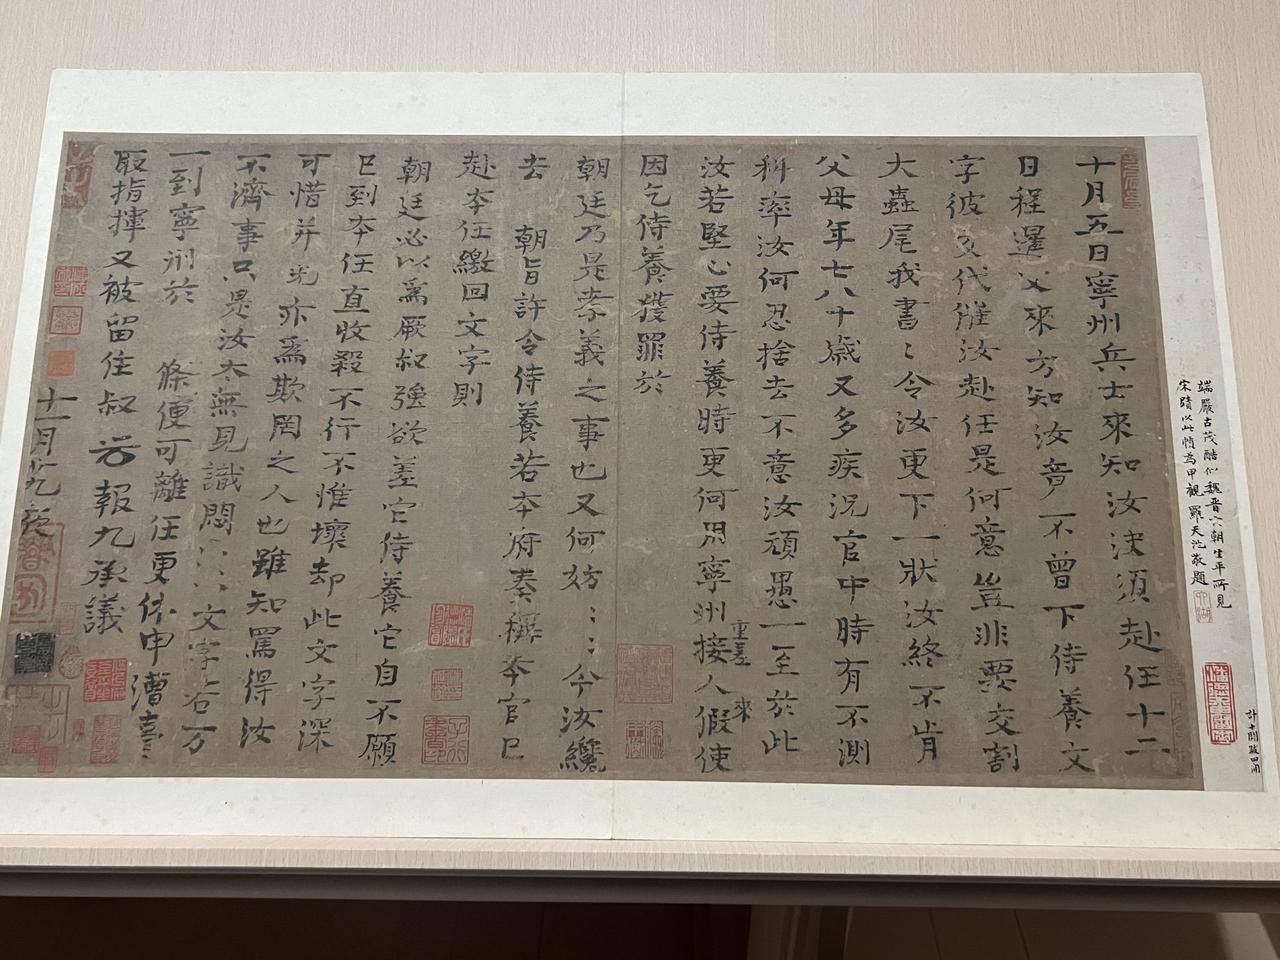 十月五日寧州兵士來知汝決須赴任十二
日程暹父來方知汝音不曾下侍養文
字彼交代催汝赴任是何意豈非要交割
大蟲尾我書〻令汝更下一狀汝終不肯
父母年七八十歲又多疾況官中時有不測
科率汝何忍捨去不意汝頑愚一至於此
汝若堅心要侍養時更何用寧州接人假使
重差 來
因乞侍養獲罪於
朝廷乃是孝義之事也又何妨〻〻今汝纔
去 朝旨許令侍養若本府奏稱本官已
赴本任繳回文字則
朝廷必以為厥叔強欲差它侍養它自不願
已到本任直收殺不行不惟壞却此文字深
可惜并光亦為欺罔之人也雖知罵得汝
不濟事只是汝太無見識悶〻〻文字若万
一到寧州於 條便可離任更休申漕臺〻
取指揮又被留住叔 光 報九承議
十一月
端嚴古茂酷似魏晉六朝生平所見
宋蹟以此幀為甲觀 羅天池敬題